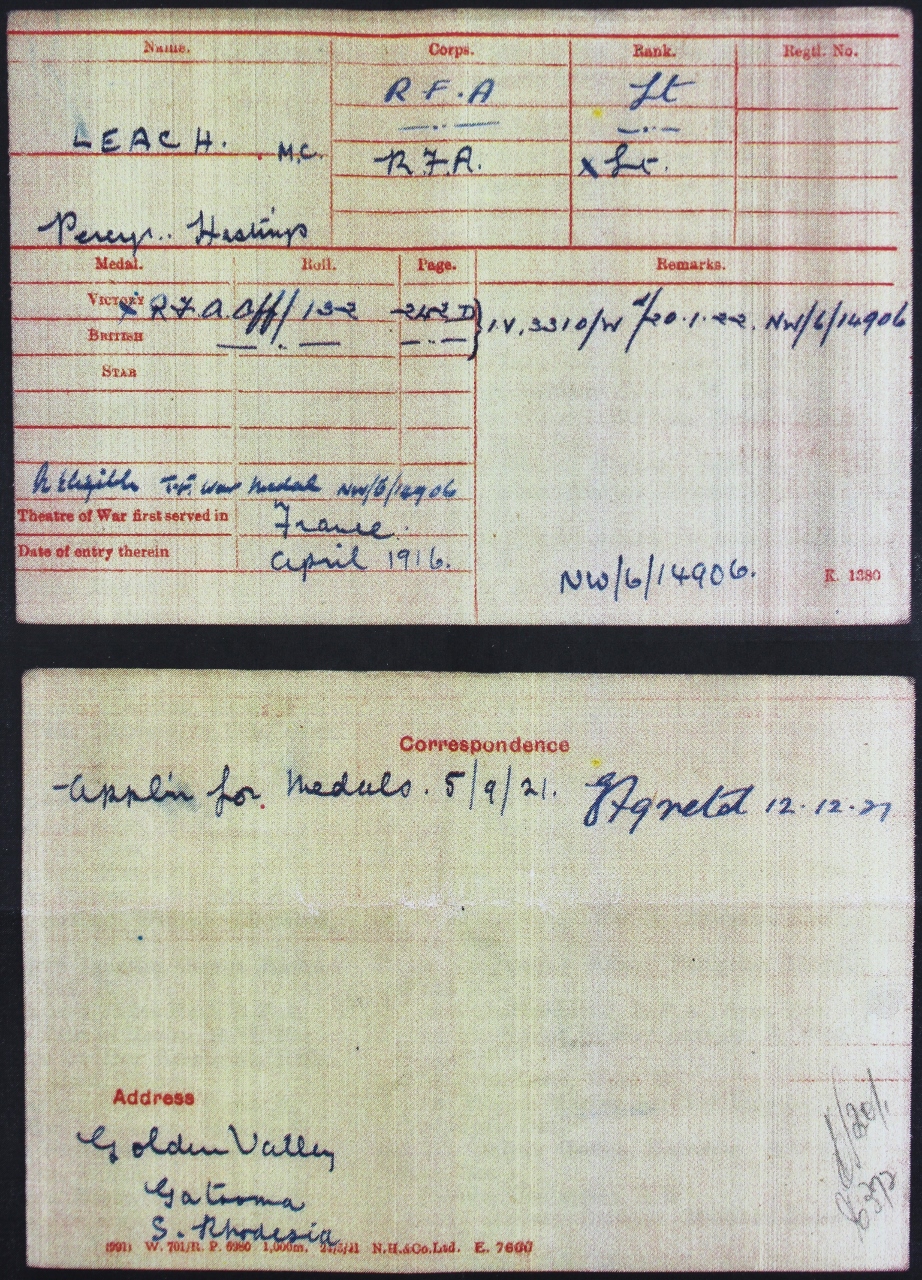 Name. Corps. Rank. Regtl. No.
R F.A Lt
LEACH. M.C.
R.F.A. x Lt.
Percy.. Hastings
Medal. Roll. Page. Remarks.
Victory x R.F.A. Off/132 242 D } I.V. 3310/W d/20.1.22. NW/6/14906
British — . — — . —
Star
Eligible War Medal NW/6/14906
Theatre of War first served in France.
Date of entry therein April 1916.
NW/6/14906. K. 1380
Correspondence
Appl'n for Medals. 5/9/21. 12.12.21
Address
Golden Valley
Gatooma
S. Rhodesia
(991) W. 701/R. P. 6980 1,000m. 24/3/21 N.H.&Co.Ltd. E. 7600